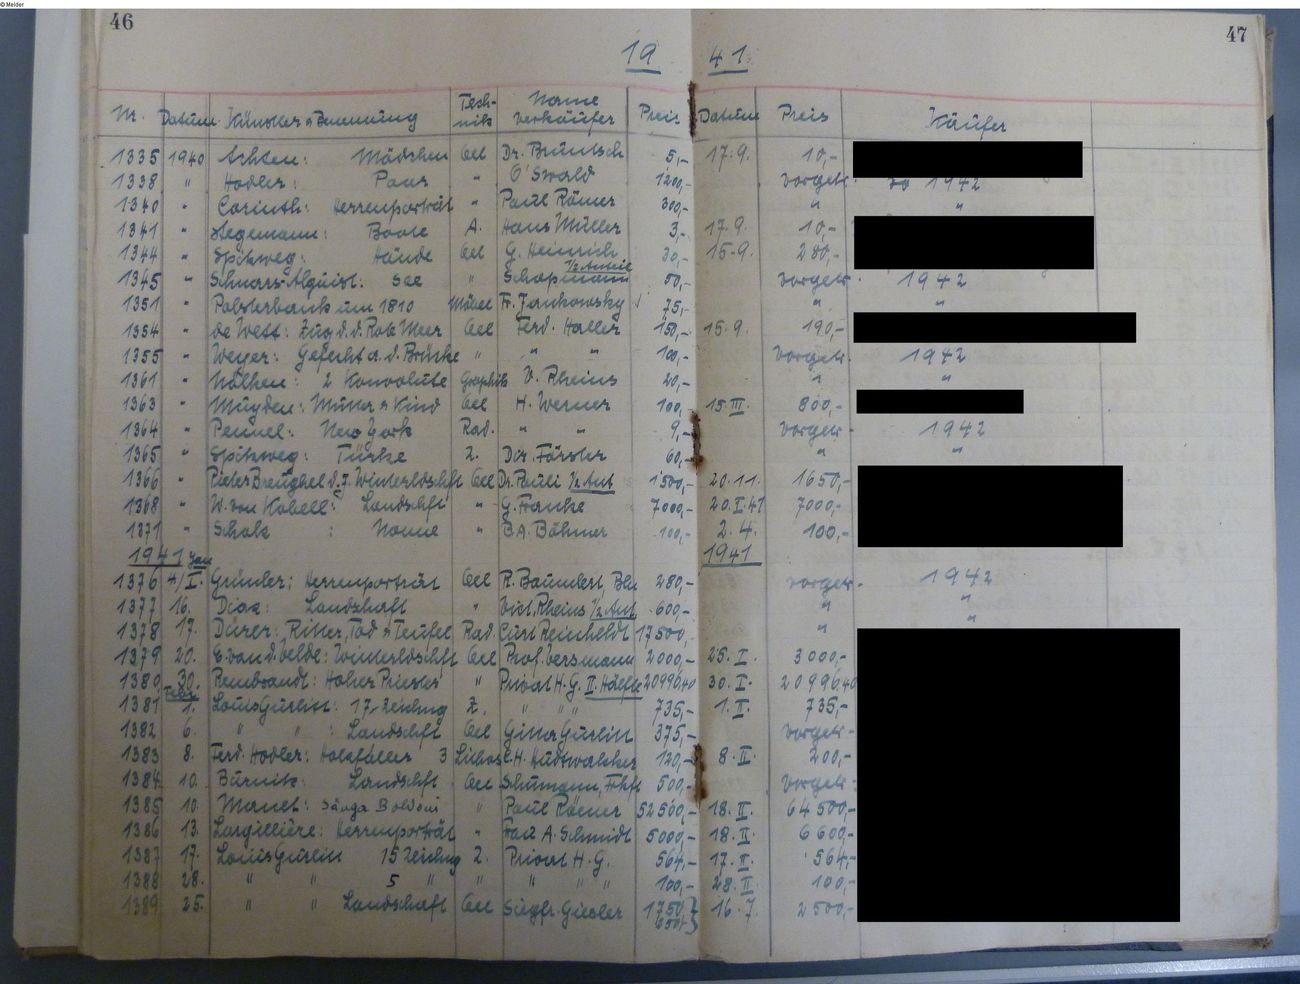 © Melder
46
47
19 41
Nr. Datum Künstler u Benennung Tech-nik Name Verkäufer Preis Datum Preis Käufer
1335 1940 Achten: Mädchen Oel Dr. Brüntsch 5,- 17.9. 10,-
1338 " Hodler: Paar " O'Swald 1200,- vorgetr. 1942
1340 " Corinth: Herrenporträt " Paul Römer 300,- " "
1341 " Stegemann: Boote A. Hans Müller 3,- 17.9. 10,-
1344 " Spitzweg: Hände Oel G. Heinrich 30,- 15.9. 280,-
1345 " Schnars-Alquist: See " Schopmann 1/2 Anteil 50,- vorgetr. 1942
1351 " Polsterbank um 1810 Möbel Fr. Jankowsky 75,- " "
1354 " de Wett: Zug d. d. Rote Meer Oel Ferd. Haller 150,- 15.9. 190,-
1355 " Weyer: Gefecht a. d. Brücke " " " 100,- vorgetr. 1942
1361 " Nölken: 2 Konvolute Graphik V. Rheins 20,- " "
1363 " Muyden: Mutter u Kind Oel H. Werner 100,- 15.III. 800,-
1364 " Pennel: New York Rad. " " 9,- vorgetr. 1942
1365 " Spitzweg: Türke Z. Dor. Förster 60,- " "
1366 " Pieter Breughel d. J. Winterldschft Oel Dr. Pauli 1/2 Ant 1500,- 20.11. 1650,-
1368 " W. von Kobell: Landschft " G. Franke 7000,- 20.I.41 7000,-
1371 " Scholz : Nonne " B.A. Böhmer 100,- 2.4. 100,-
1941 Jan 1941
1376 4/I. Grünler: Herrenporträt Oel R. Baumbert, Bln 280,- vorgetr. 1942
1377 16. Diaz: Landschaft " Vict. Rheins 1/2 Ant 600,- " "
1378 17. Dürer: Ritter, Tod u Teufel Rad. Curt Reinheldt 17500,- " "
1379 20. E. van d. Velde: Winterldschft Oel Prof. Versmann 2000,- 25.I. 3000,-
1380 30. Rembrandt: Hoher Priester " Privat H.G. II. Hälfte 20990,40 30.I. 20990,40
Febr.
1381 1. Louis Gurlitt: 17 Zeichng Z. " " " 735,- 1.II. 735,-
1382 6. " " : Landschft Oel Gitta Gurlitt 375,- vorgetr.
1383 8. Ferd. Hodler: Holzfäller 3 Lithos C.H. Hudtwalcker 120,- 8.II. 200,-
1384 10. Bürnitz: Landschft Oel Schumann, Frkft 500,- vorgetr.
1385 10. Manet: Sänga Boldoni " Paul Römer 52500,- 18.II. 64500,-
1386 13. Largillière: Herrenporträt " Frau A. Schmidt 5000,- 18.II. 6600,-
1387 17. Louis Gurlitt 15 Zeichng Z. Privat H.G. 564,- 17.II. 564,-
1388 28. " " 5 " " " " " 100,- 28.II. 100,-
1389 25. " " Landschaft Oel Siegfr. Giesler 1750,- 16.7. 2500,-
650,-